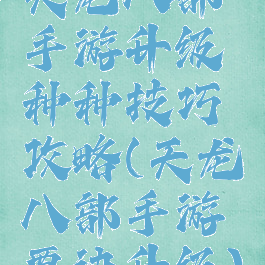 天龙八部
手游升级
种种技巧
攻略(天龙
八部手游
升级)